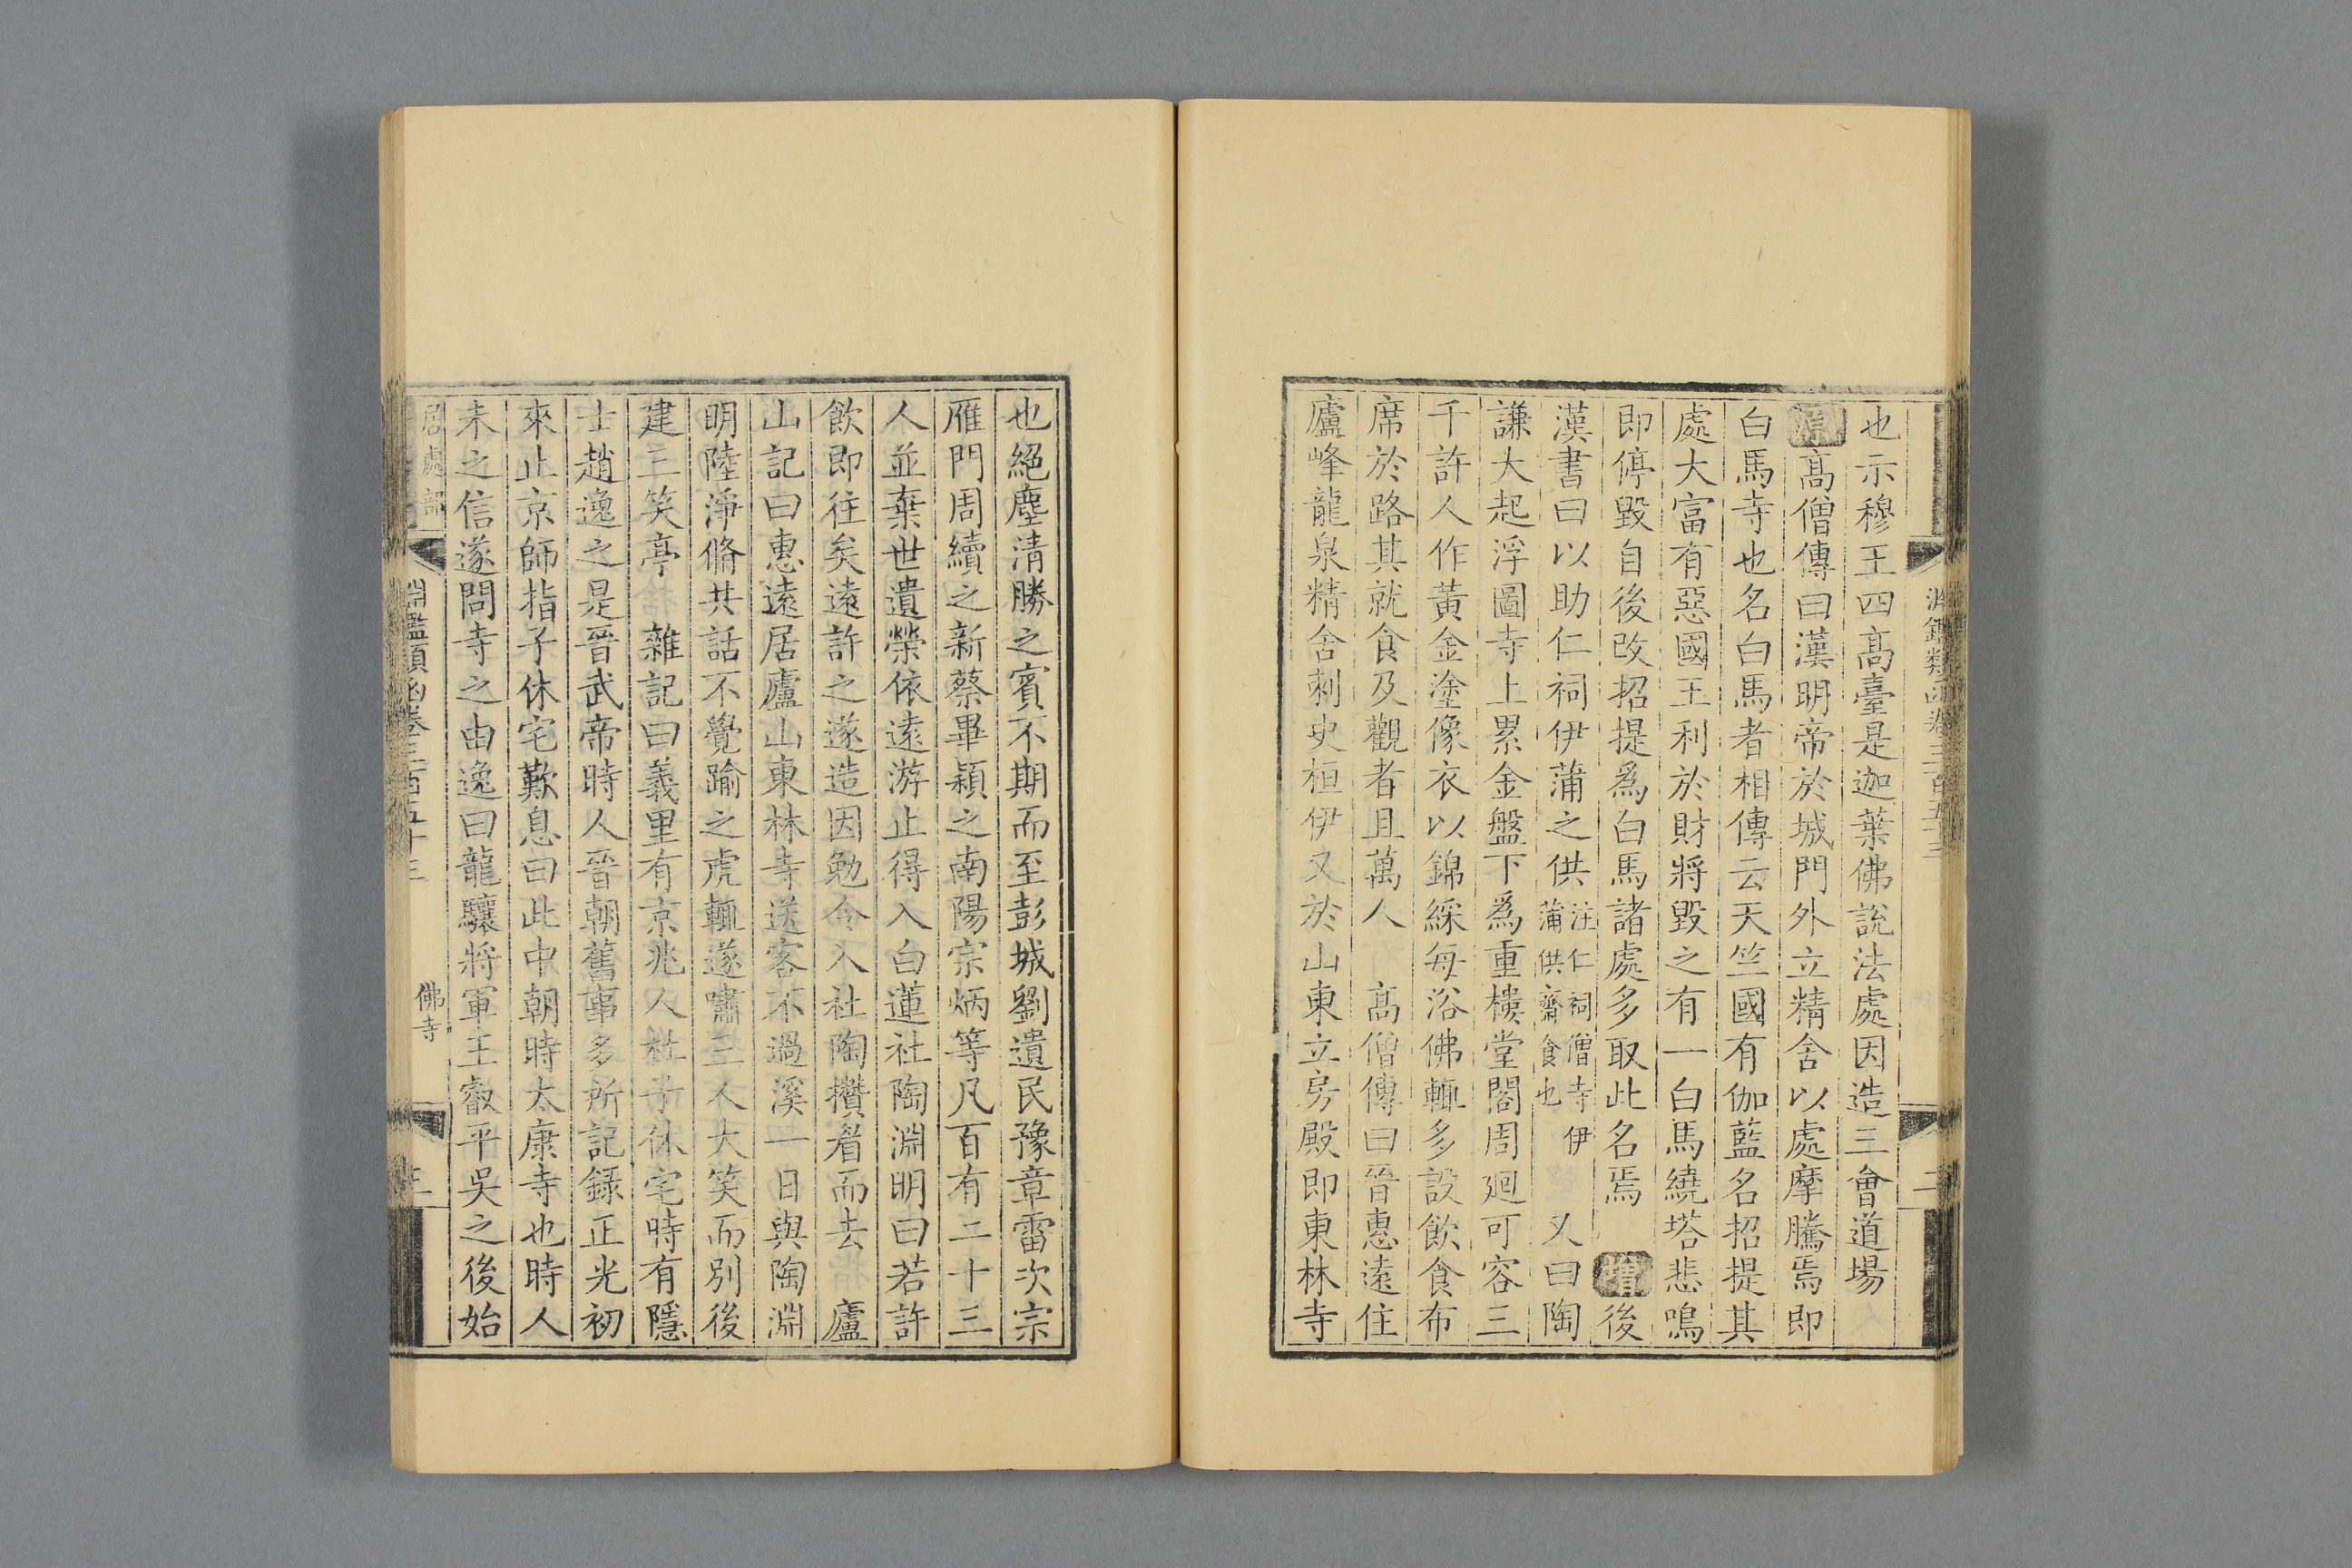 淵鑑類函卷三百五十三
二
也示穆王四高臺是迦葉佛說法處因造三會道場
原高僧傳曰漢明帝於城門外立精舍以處摩騰焉即
白馬寺也名白馬者相傳云天竺國有伽藍名招提其
處大富有惡國王利於財將毀之有一白馬繞塔悲鳴
即停毀自後改招提爲白馬諸處多取此名焉 增後
漢書曰以助仁祠伊蒲之供注仁祠僧寺伊蒲供齋食也 又曰陶
謙大起浮圖寺上累金盤下爲重樓堂閣周廻可容三
千許人作黃金塗像衣以錦綵每浴佛輒多設飲食布
席於路其就食及觀者且萬人 高僧傳曰晉惠遠住
廬峰龍泉精舍刺史桓伊又於山東立房殿即東林寺
也絕塵清勝之賓不期而至彭城劉遺民豫章雷次宗
雁門周續之新蔡畢穎之南陽宗炳等凡百有二十三
人並棄世遺榮依遠游止得入白蓮社陶淵明曰若許
飲即往矣遠許之遂造因勉令入社陶攢眉而去 廬
山記曰惠遠居廬山東林寺送客不過溪一日與陶淵
明陸淨脩共話不覺踰之虎輒遂嘯三人大笑而別後
建三笑亭 雜記曰義里有京兆人杜子休宅時有隱
士趙逸之是晉武帝時人晉朝舊事多所記錄正光初
來止京師指子休宅歎息曰此中朝時太康寺也時人
未之信遂問寺之由逸曰龍驤將軍王叡平吳之後始
居處部
淵鑑類函卷三百五十三
佛寺